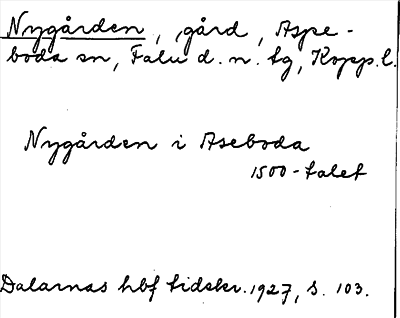 Nygården, gård, Aspe-
boda sn, Falu d. n. tg, Kopp. l.
Nygården i Aseboda
1500-talet
Dalarnas hbf tidskr. 1927, s. 103.